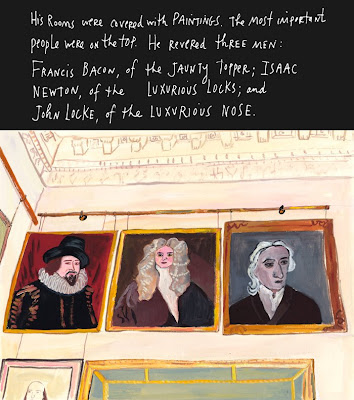 His Rooms were covered with PAINTINGS. The most important
people were on the top. He revered three men:
Francis Bacon, of the Jaunty Topper; Isaac
Newton, of the Luxurious Locks; and
John Locke, of the Luxurious Nose.